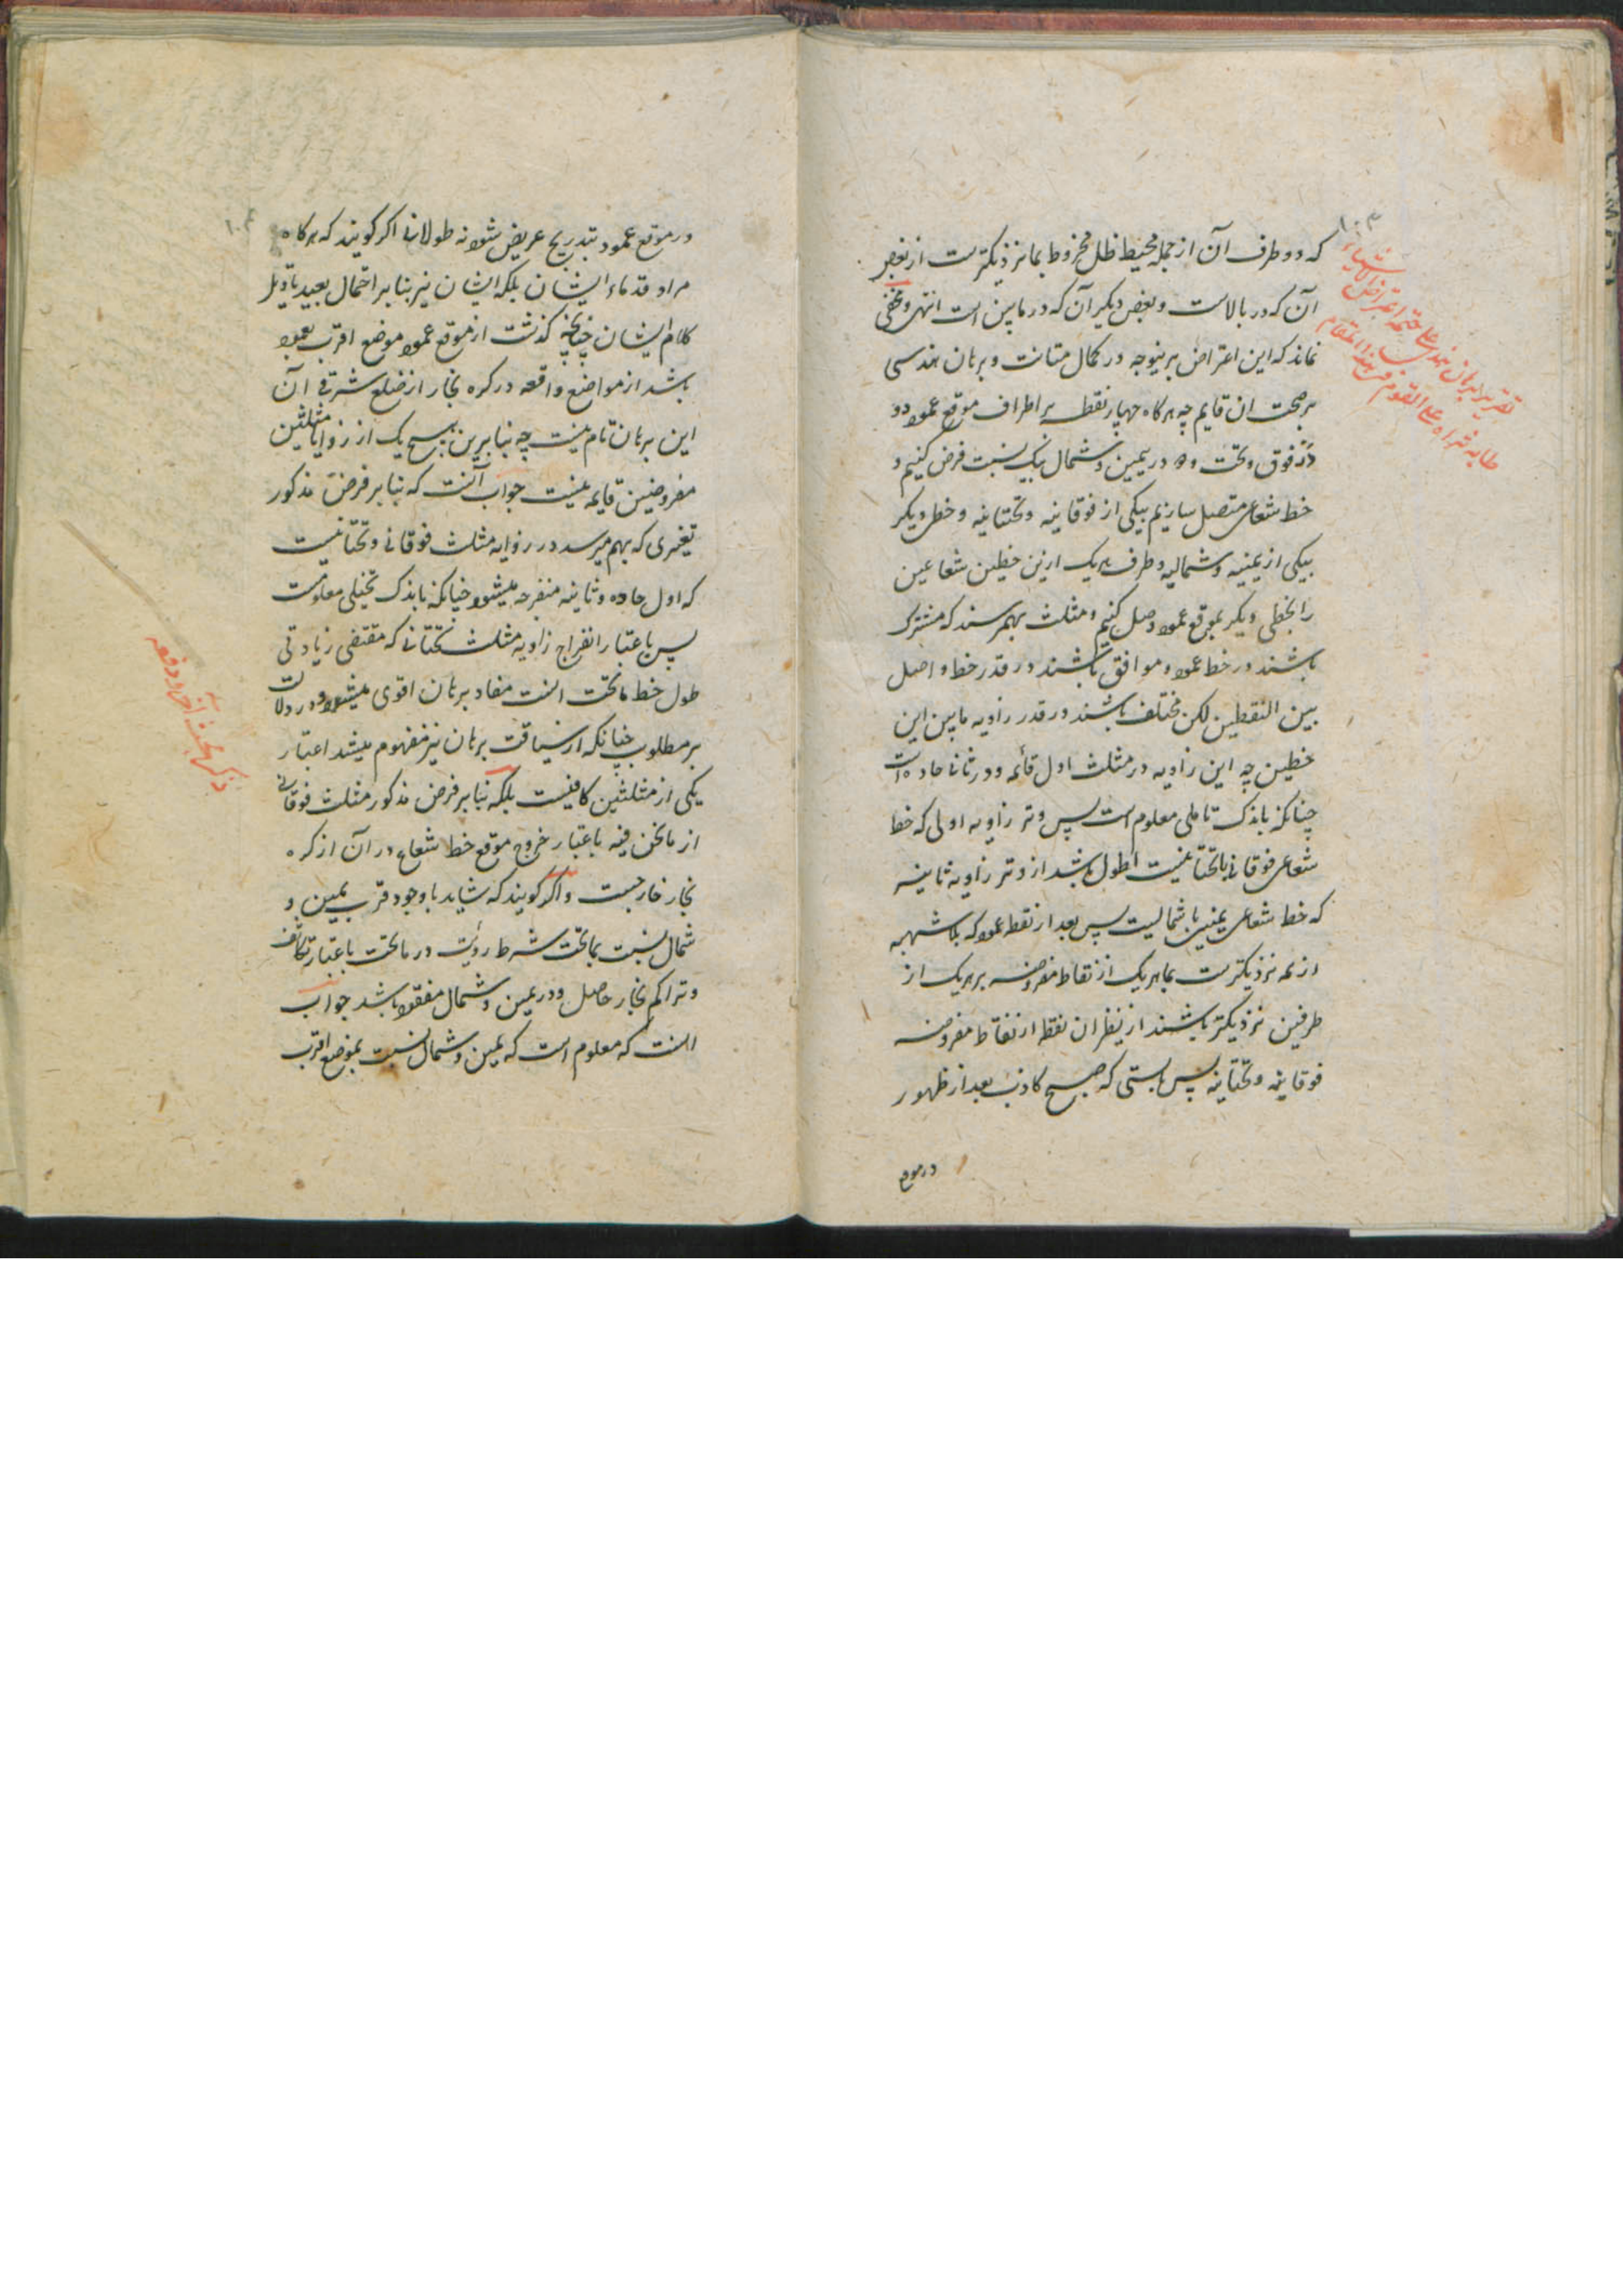 ۱۰۳
که دو طرف آن از جمله محیط ظل مخروط بما نزدیکترست از بعض
آن که در بالاست و بعض دیگر آن که در مابین است انتهی و مخفی
نماند که این اعتراض برینوجه در کمال متانت و برهان هندسی
بر صحت ان قایم چه هرگاه چهار نقطه بر اطراف موقع عمود دو
در فوق و تحت و دو در یمین و شمال بیک نسبت فرض کنیم و
خط شعاعی متصل سازیم بیکی از فوقانیه و تحتانیه و خطی دیگر
بیکی از یمنیه و شمالیه و طرف هریک ازین خطین شعاعین
را بخطی دیگر بموقع عمود وصل کنیم دو مثلث بهمرسند که مشترک
باشند در خط عمود و موافق باشند در قدر خط واصل
بین النقطین لکن مختلف باشند در قدر زاویه مابین این
خطین چه این زاویه در مثلث اول قائمه و در ثانی حاده است
چنانکه باندک تاملی معلوم است پس وتر زاویه اولی که خط
شعاعی فوقانی یا تحتانیست اطول باشد از وتر زاویه ثانیه
که خط شعاعی یمنی یا شمالیست پس بعد از نقطه عمود که بلا شبهه
از همه نزدیکترست بما هریک از نقاط مفروضه بر هریک از
طرفین نزدیکتر باشند از نظران نقطه از نقاط مفروضه
فوقانیه و تحتانیه پس بایستی که صبح کاذب بعد از ظهور
در موقع
در موقع عمود بتدریج عریض شود نه طولانی اگر گویند که هرگاه
مراد قدماء ایشان بلکه ایشان نیز بنابر احتمال بعید بتاویل
کلام ایشان چنانچه گذشت از موقع عمود موضع اقرب بعمود
باشد از مواضع واقعه در کره بخار از ضلع شرقی آن
این برهان تام نیست چه بنابرین هیچیک از زوایا مثلثین
مفروضین قایمه نیست جواب آنست که بنابر فرض مذکور
تغیری که بهم میرسد در زوایه مثلث فوقانی و تحتانیست
که اول حاده و ثانیه منفرجه میشود چنانکه باندک تخیلی معلومست
پس باعتبار انفراج زاویه مثلث تحتانی که مقتضی زیادتی
طول خط ماتحت است مفاد برهان اقوی میشود و در دلالت
بر مطلوب چنانکه از سیاقت برهان نیز مفهوم میشد اعتبار
یکی از مثلثین کافیست بلکه بنابر فرض مذکور مثلث فوقانی
از ما نحن فیه باعتبار خروج موقع خط شعاع در آن از کره
بخار خارجست و اگر گویند که شاید با وجود قرب یمین و
شمال نسبت بماتحت شرط رؤیت در ماتحت باعتبار تکاثف
و تراکم بخار حاصل و در یمین و شمال مفقود باشد جواب
انست که معلوم است که یمین و شمال نسبت بموضع اقرب